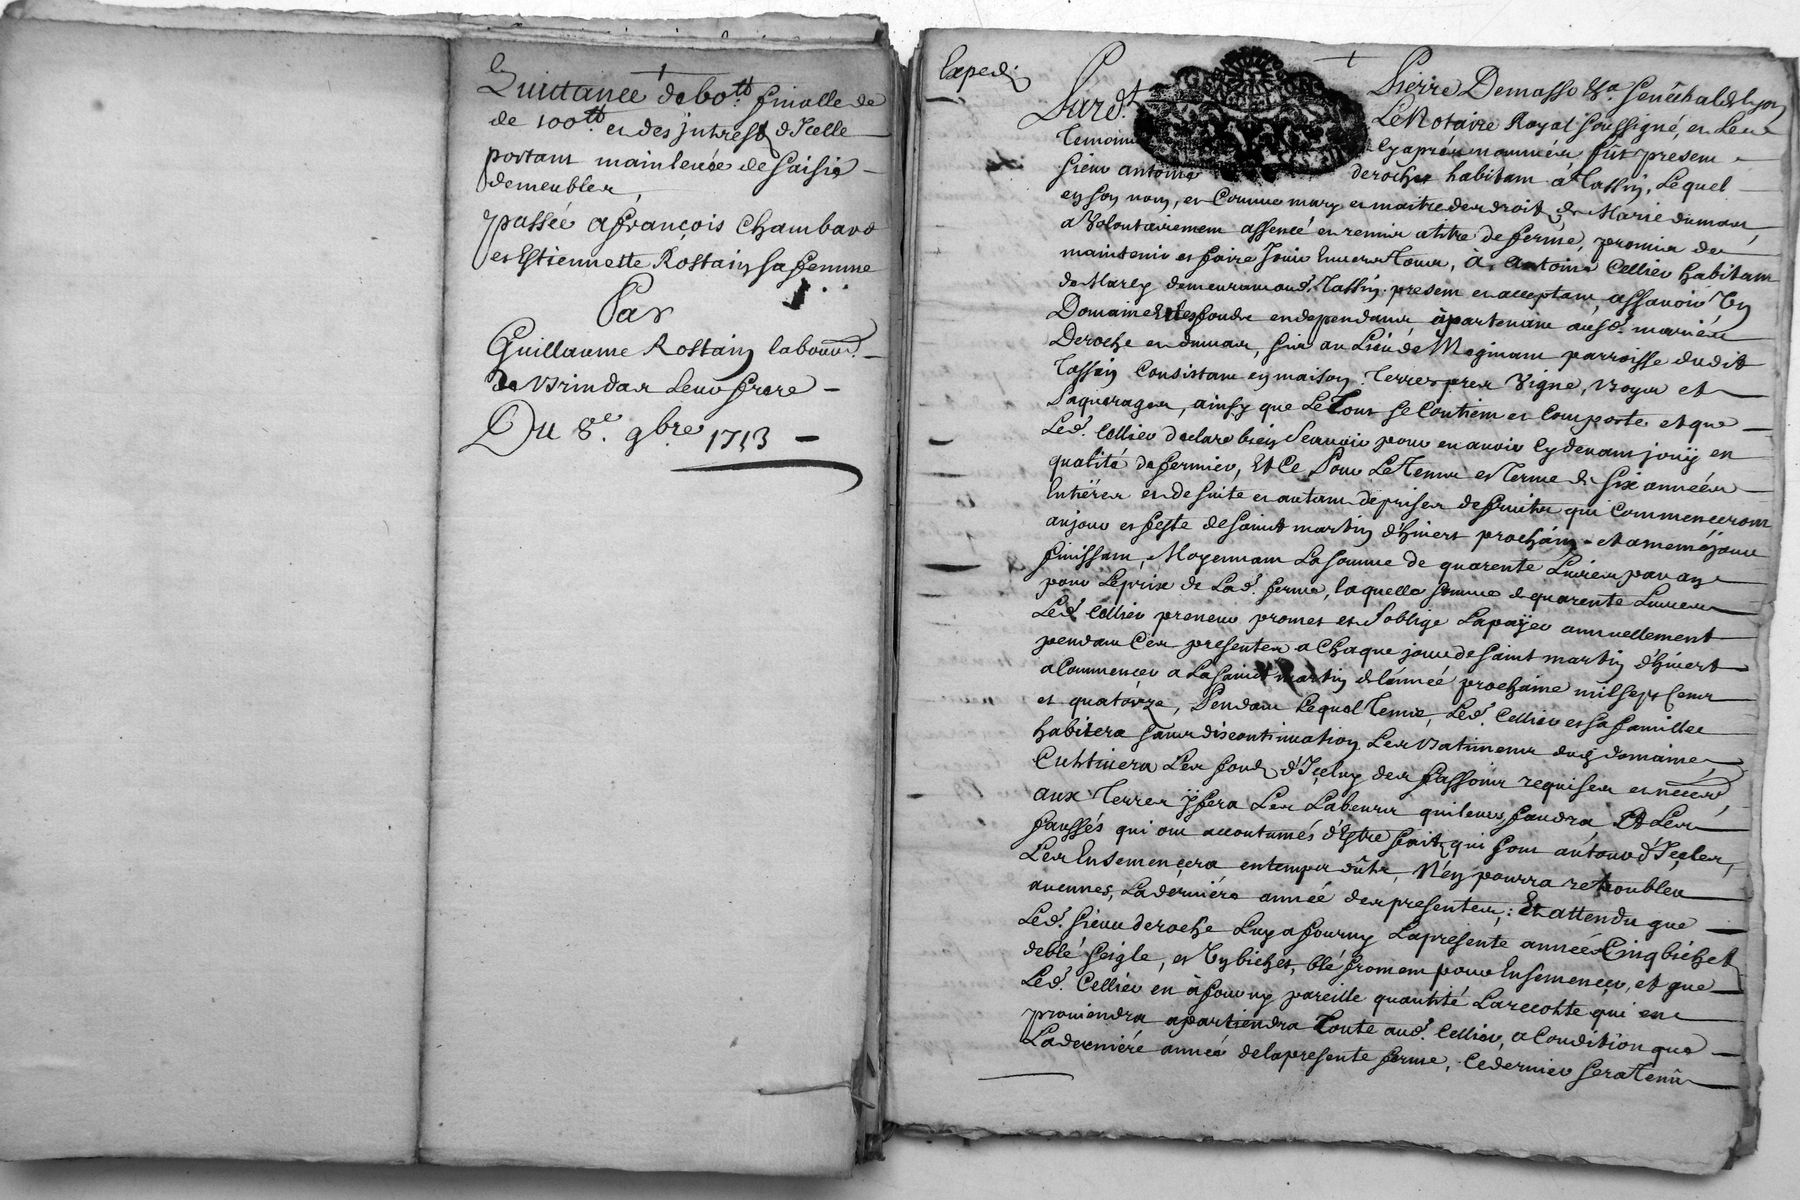 Quittance de 60ᵗᵗ finalle de
de 100ᵗᵗ et des jntrests d'Icelle
portant mainlevée de saisie
de meubles,
passée a françois Chambard
et Estiennette Rostain sa femme
Par
Guillaume Rostain labour.
de Brindas leur frere
Du 8ᵉ 9bre 1713
Exped.
Pierre Demasso sr Senéchal de lyon
Pard.ᵗ Le Notaire Royal soussigné, et Les
Temoins cy aprés nommés, fût present
sieur antoine deroche habitant a Tassin, Lequel
en son nom, et Comme mary et maitre des droits de Marie dumas,
a Volontairement assencé et remis a titre de ferme, promis de
maintenir et faire Jouir Envers Tous, A Antoine Cellier habitant
de Marcy demeurant aud. Tassin present et acceptant, assavoir Un
Domaine et les fonds en dependants apartenant ausd. mariés
Deroche et dumas, sis au Lieu de Meginant parroisse dudit
Tassin Consistant en maison, Terres pres Vigne, Boys et
Paquerages, ainsy que Le Tout se Contient et Comporte et que
Led. Cellier declare bien sçavoir pour en avoir cy devant jouÿ en
qualité de fermier, Et Ce Pour Le Temps et Terme de six années
Entiéres et de suite et autant de prises de fruits qui Commenceront
au jour et feste de saint martin d'hivert prochain et a meme jour
finissant, Moyennant La somme de quarente Livres par an
pour Le prix de Lad. ferme, laquelle somme de quarente Livres
Led. Cellier preneur promet et s'oblige La païjer annuellement
pendant Ces presentes a Chaque jour de saint martin d'hivert
a Commencer a La saint martin de l'année prochaine mil sept Cens
et quatorze, Pendant Lequel Temps, Led. Cellier et sa famille
habitera sans discontinuation Les Batimens dud. domaine,
Cultivera Les fonds d'Iceluy des fassons requises et necess.
aux Terres ÿ fera Les Labeurs qu'il leurs faudra Et Les
faussés qui ont accoutumés d'Estre fait, qui sont autour d'Icelles,
Les Ensemencera en temps dûbs, N'en pourra retroubler
avennes, La derniére année des presentes; Et attendu que
Led. sieur deroche Luy a fourny La presente année Cinq bichets
de blé seigle, et Un bichet, blé froment pour Ensemencer, et que
Led. Cellier en a fourny pareille quantité La recolte qui en
proviendra apartiendra Toute aud. Cellier, a Condition que
La derniére année de la presente ferme, Ce dernier sera Tenû